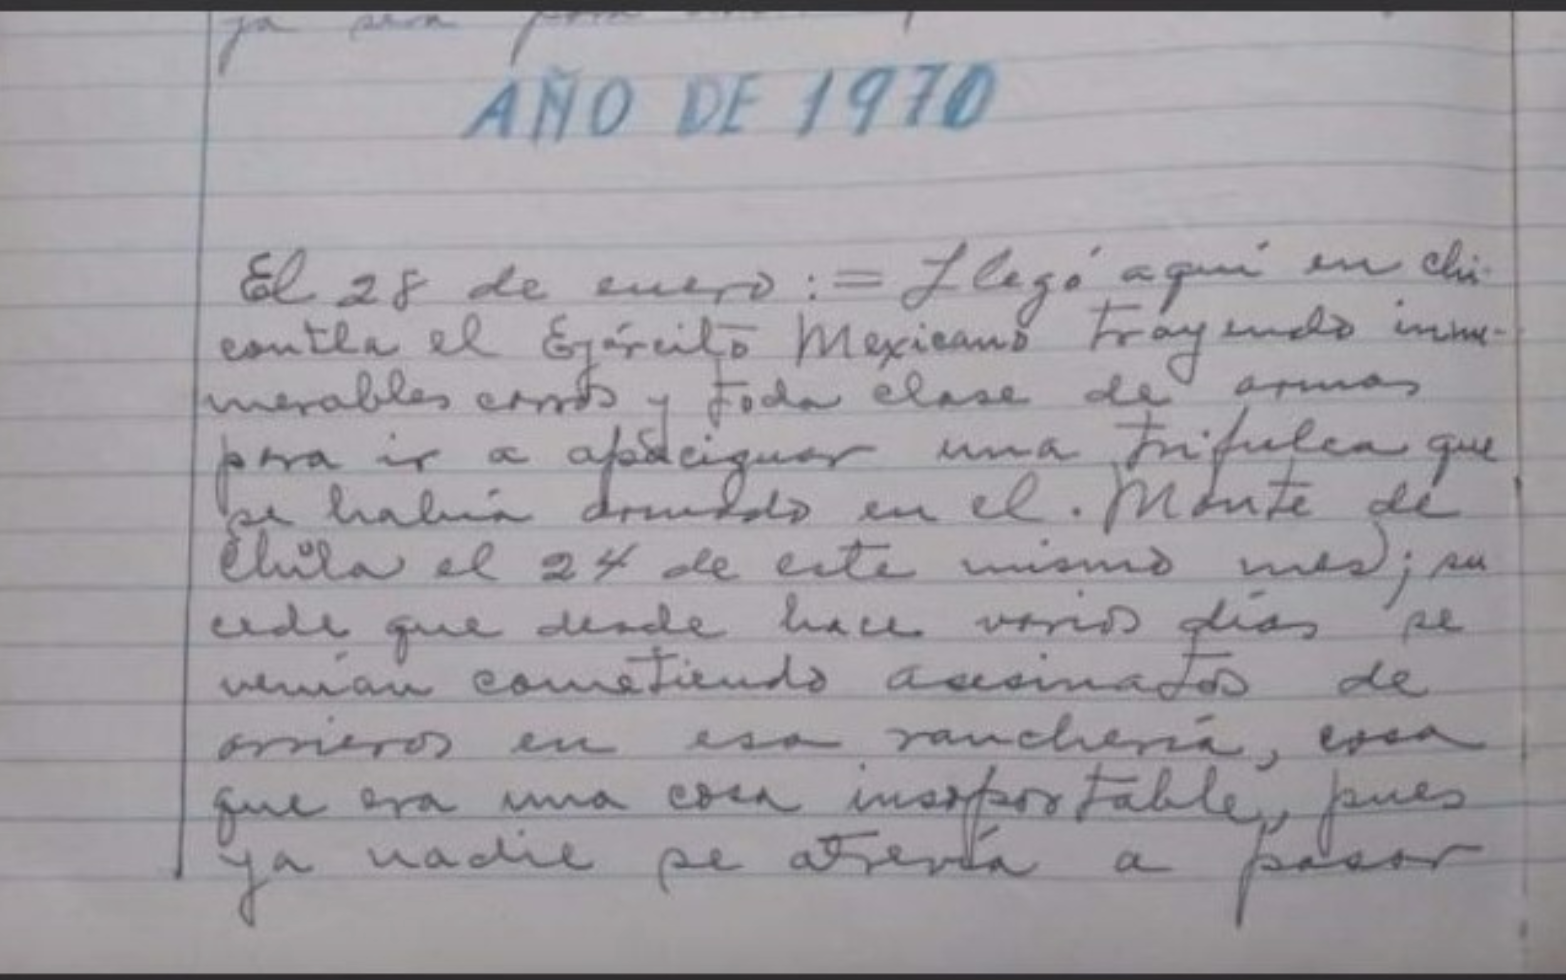 ya sera para
AÑO DE 1970
El 28 de enero := Llegó aquí en chi-
contla el Ejército Mexicano trayendo innu-
merables carros y toda clase de armas
para ir a apaciguar una trifulca que
se había armado en el. Monte de
Chila el 24 de este mismo mes; su
cede que desde hace varios días se
venían cometiendo asesinatos de
arrieros en esa ranchería, cosa
que era una cosa insoportable, pues
ya nadie se atrevía a pasar